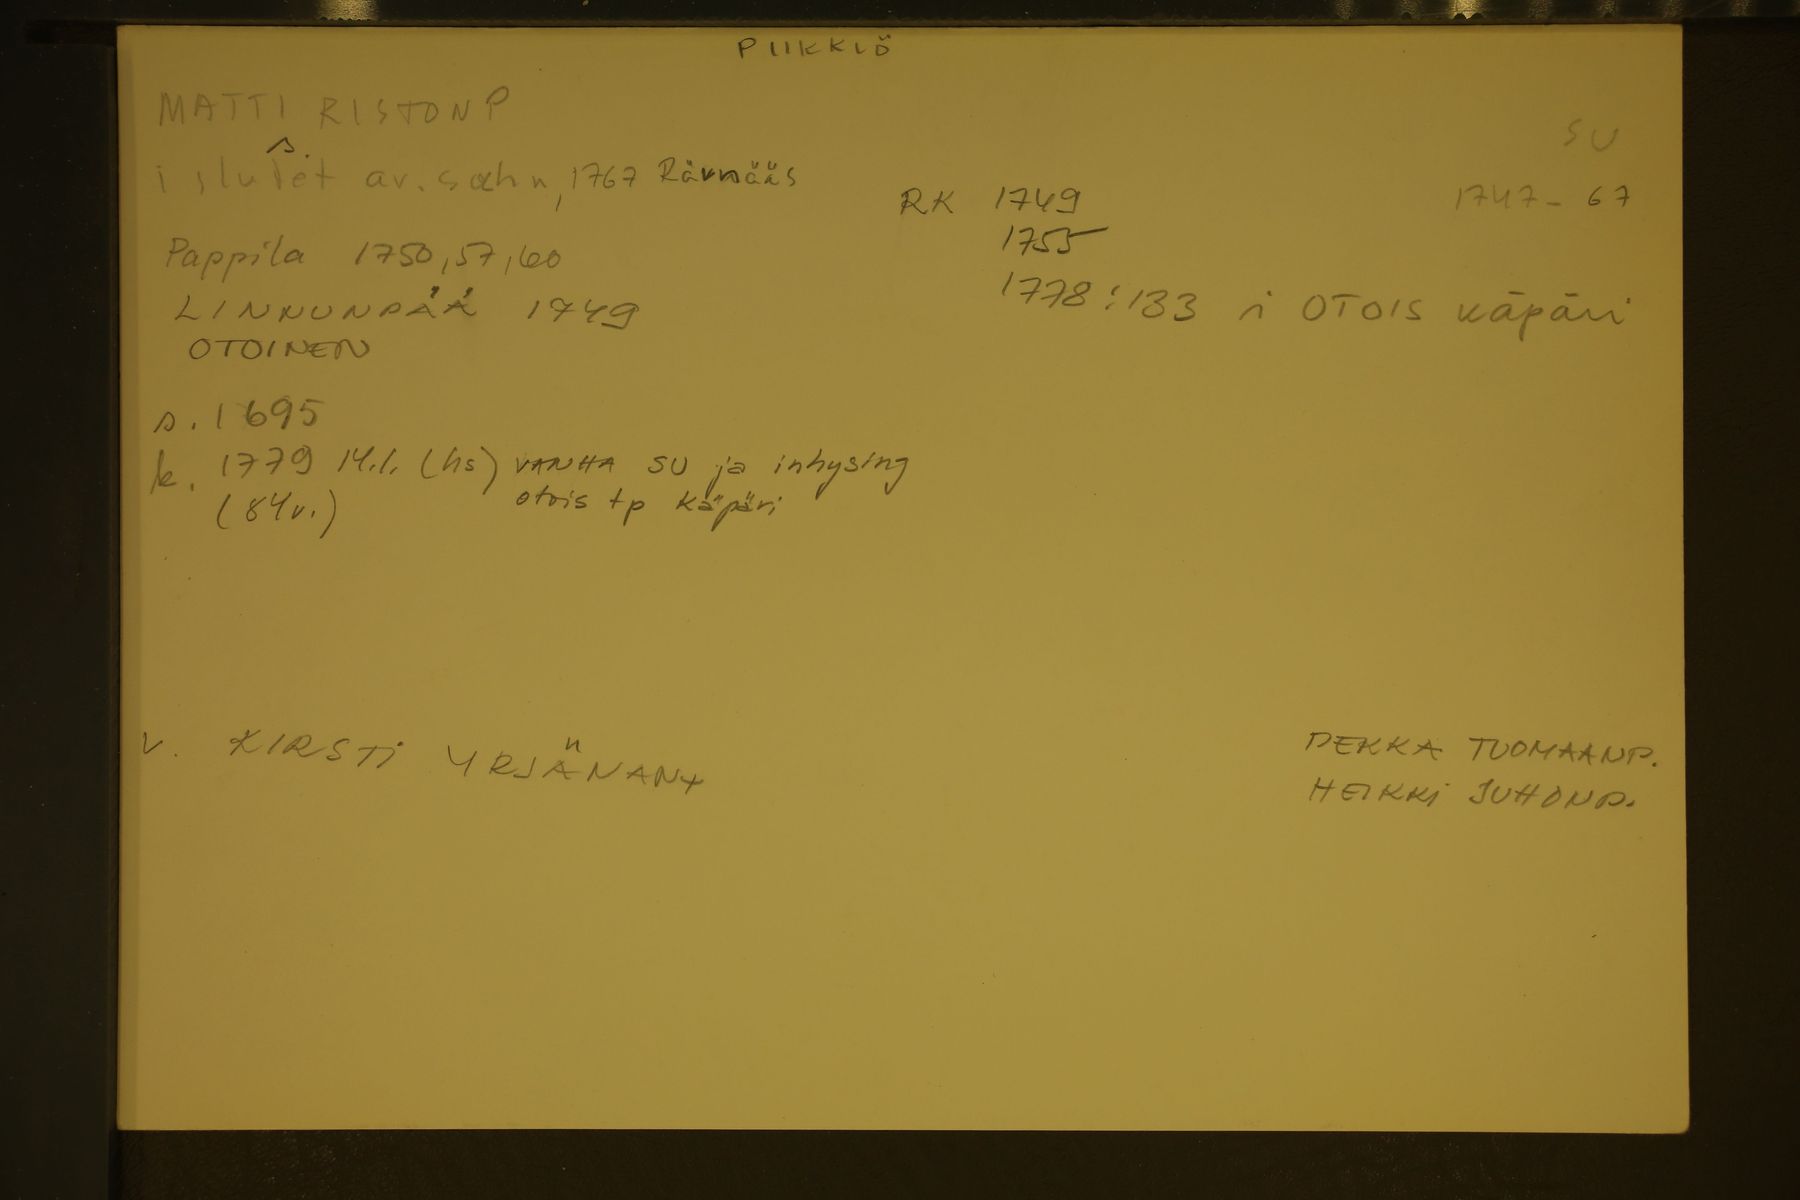 PIIKKIÖ
MATTI RISTONP
SU
i slutet av. socknn, 1767 Rävnääs
1747-67
RK 1749
1755
1778:133 i OTOIS käpäri
Pappila 1750, 57, 60
LINNUNPÄÄ 1749
OTOINEN
s. 1695
k. 1779 14.1. (hs) VANHA SU ja inhysing
(84v.) otois tp Käpäri
v. KIRSTI YRJÄNANT
PEKKA TUOMAANP.
HEIKKI JUHONP.